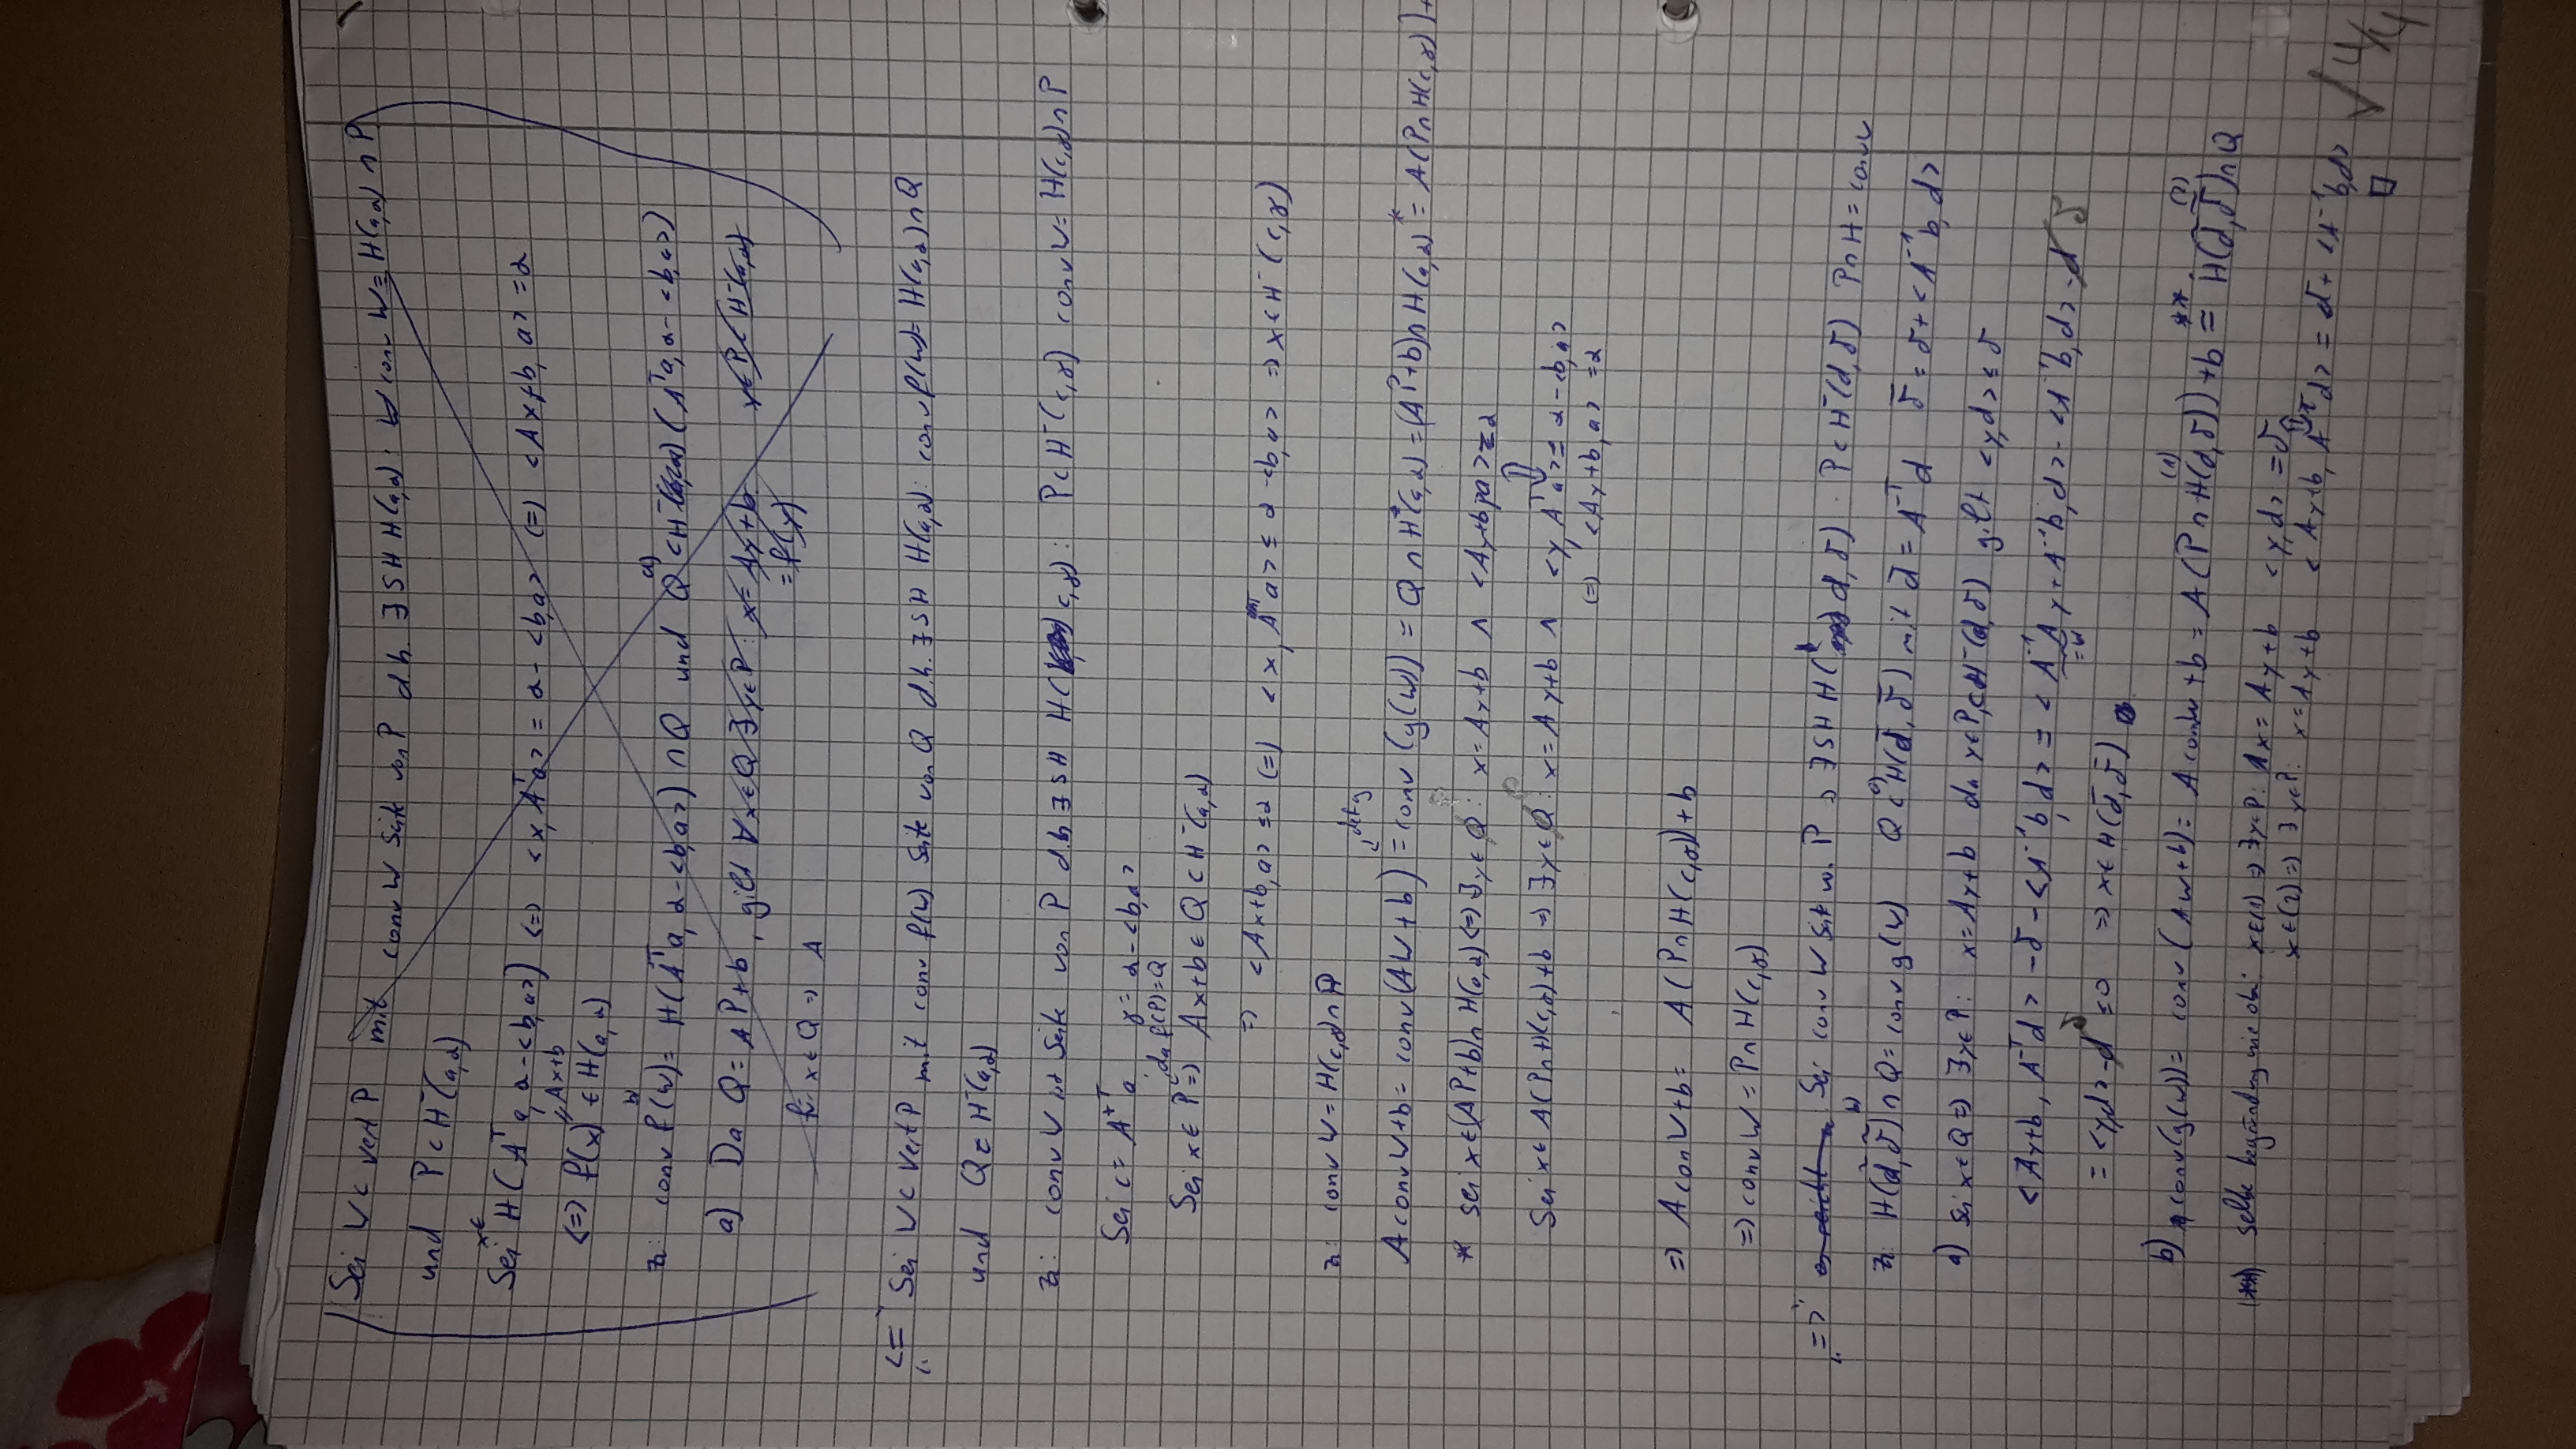 Sei W ⊂ vert P mit conv W Seite von P d.h. ∃ SH H(a,α): conv W = H(a,α) ∩ P
und P ⊂ H⁻(a,α)
Sei x∈ H(Aᵀa, α-<b,a>) <=> <x,Aᵀa> = α-<b,a> <=> <Ax+b, a> = α
<=> f(x) = Ax+b ∈ H(a,α)
z: conv f(W) = H(Aᵀa, α-<b,a>) ∩ Q und Q ⊂ H⁻(Aᵀa, α-<b,a>)
a) Da Q = AP+b, gilt ∀x∈Q ∃y∈P: x = Ay+b y∈P⊂H⁻(a,α)
= f(y)
x∈Q => A
"<=" Sei W ⊂ vert P mit conv f(W) Seite von Q d.h. ∃ SH H(a,α): conv f(W) = H(a,α) ∩ Q
und Q ⊂ H⁻(a,α)
z: conv W ist Seite von P d.h ∃ SH H(c,γ): P ⊂ H⁻(c,γ) conv W = H(c,γ) ∩ P
Sei c = Aᵀa γ = α-<b,a>
da f(P)=Q
Sei x∈P => Ax+b ∈ Q ⊂ H⁻(a,α)
=> <Ax+b,a> ≤ α <=> <x, Aᵀa> ≤ α-<b,a> => x∈H⁻(c,γ)
z: conv W = H(c,γ) ∩ P
def g
A conv W+b = conv(AW+b) = conv(g(W)) = Q ∩ H(a,α) = (AP+b) ∩ H(a,α) *= A(P∩H(c,γ))+
* sei x∈(AP+b)∩H(a,α) <=> ∃y∈Q: x = Ay+b ∧ <Ay+b,a> = α
Sei x∈A(P∩H(c,γ))+b => ∃y∈Q: x = Ay+b ∧ <y,Aᵀa> = α-<b,a>
<=> <Ay+b,a> = α
=> A conv W+b = A(P∩H(c,γ))+b
=> conv W = P∩H(c,γ)
"=>" Sei conv W Seite von P => ∃ SH H(d,δ): P⊂H⁻(d,δ) P∩H = conv W
z: b) H(d̃,δ̃) ∩ Q = conv g(W) a) Q ⊂ H(d̄,δ̄) mit d̄ = A⁻ᵀd δ̄ = δ+<A⁻¹b,d>
a) sei x∈Q => ∃y∈P: x = Ay+b da y∈P⊂H⁻(d,δ) gilt <y,d> ≤ δ
<Ay+b, A⁻ᵀd> -δ-<A⁻¹b,d> = <A⁻¹Ay+A⁻¹b,d>-<A⁻¹b,d>-δ
= <y,d>-δ ≤ 0 => x∈H(d̄,δ̄)
b) conv(g(W)) = conv(AW+b) = A conv W+b = A(P∩H(d,δ))+b (1) **= H(d̃,δ̃)∩Q (2)
(**) selbe begründung wie oben: x∈(1) => ∃y∈P: Ax = Ay+b <y,d> = δ
x∈(2) => ∃y∈P: x = Ay+b <Ay+b, A⁻ᵀd> = δ+<A⁻¹b,d>
□ ✓ 4/4